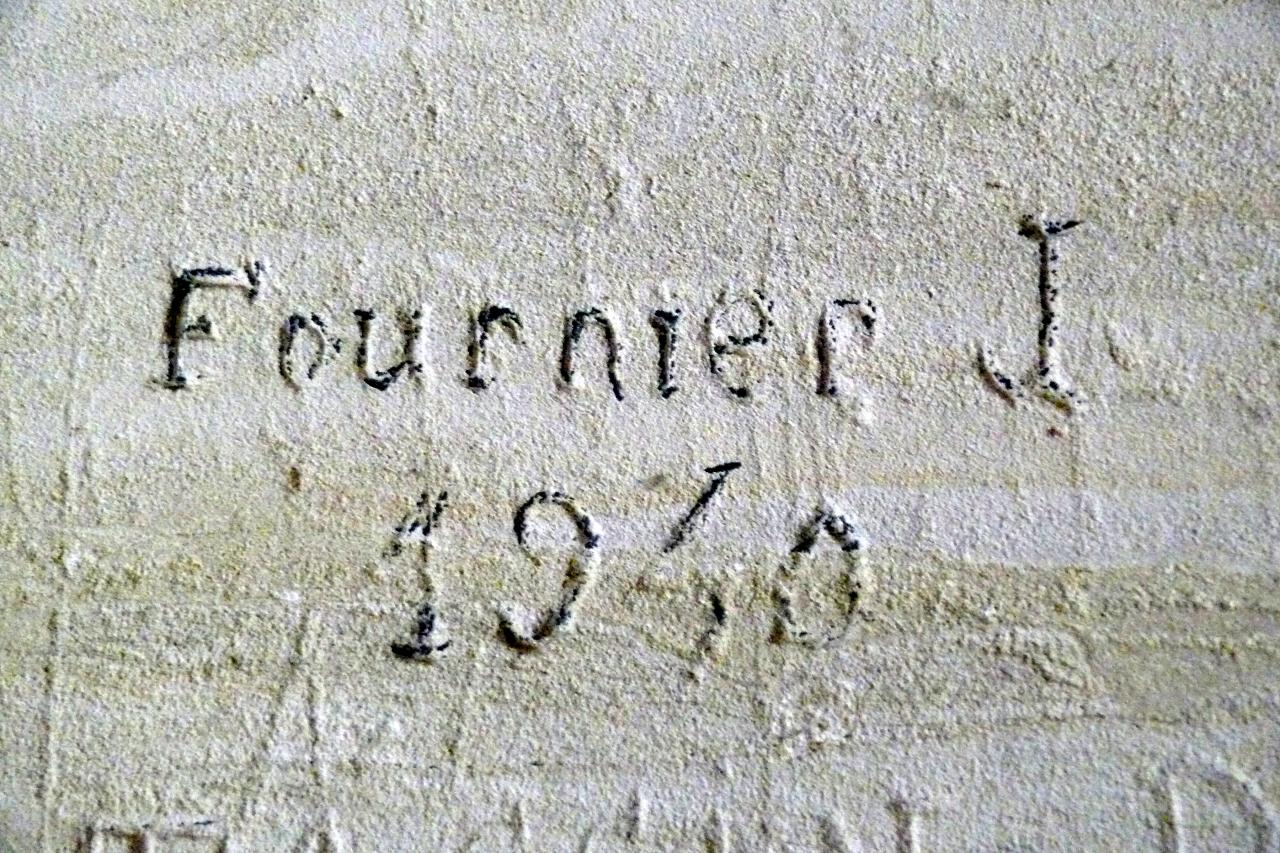 Fournier J.
1940